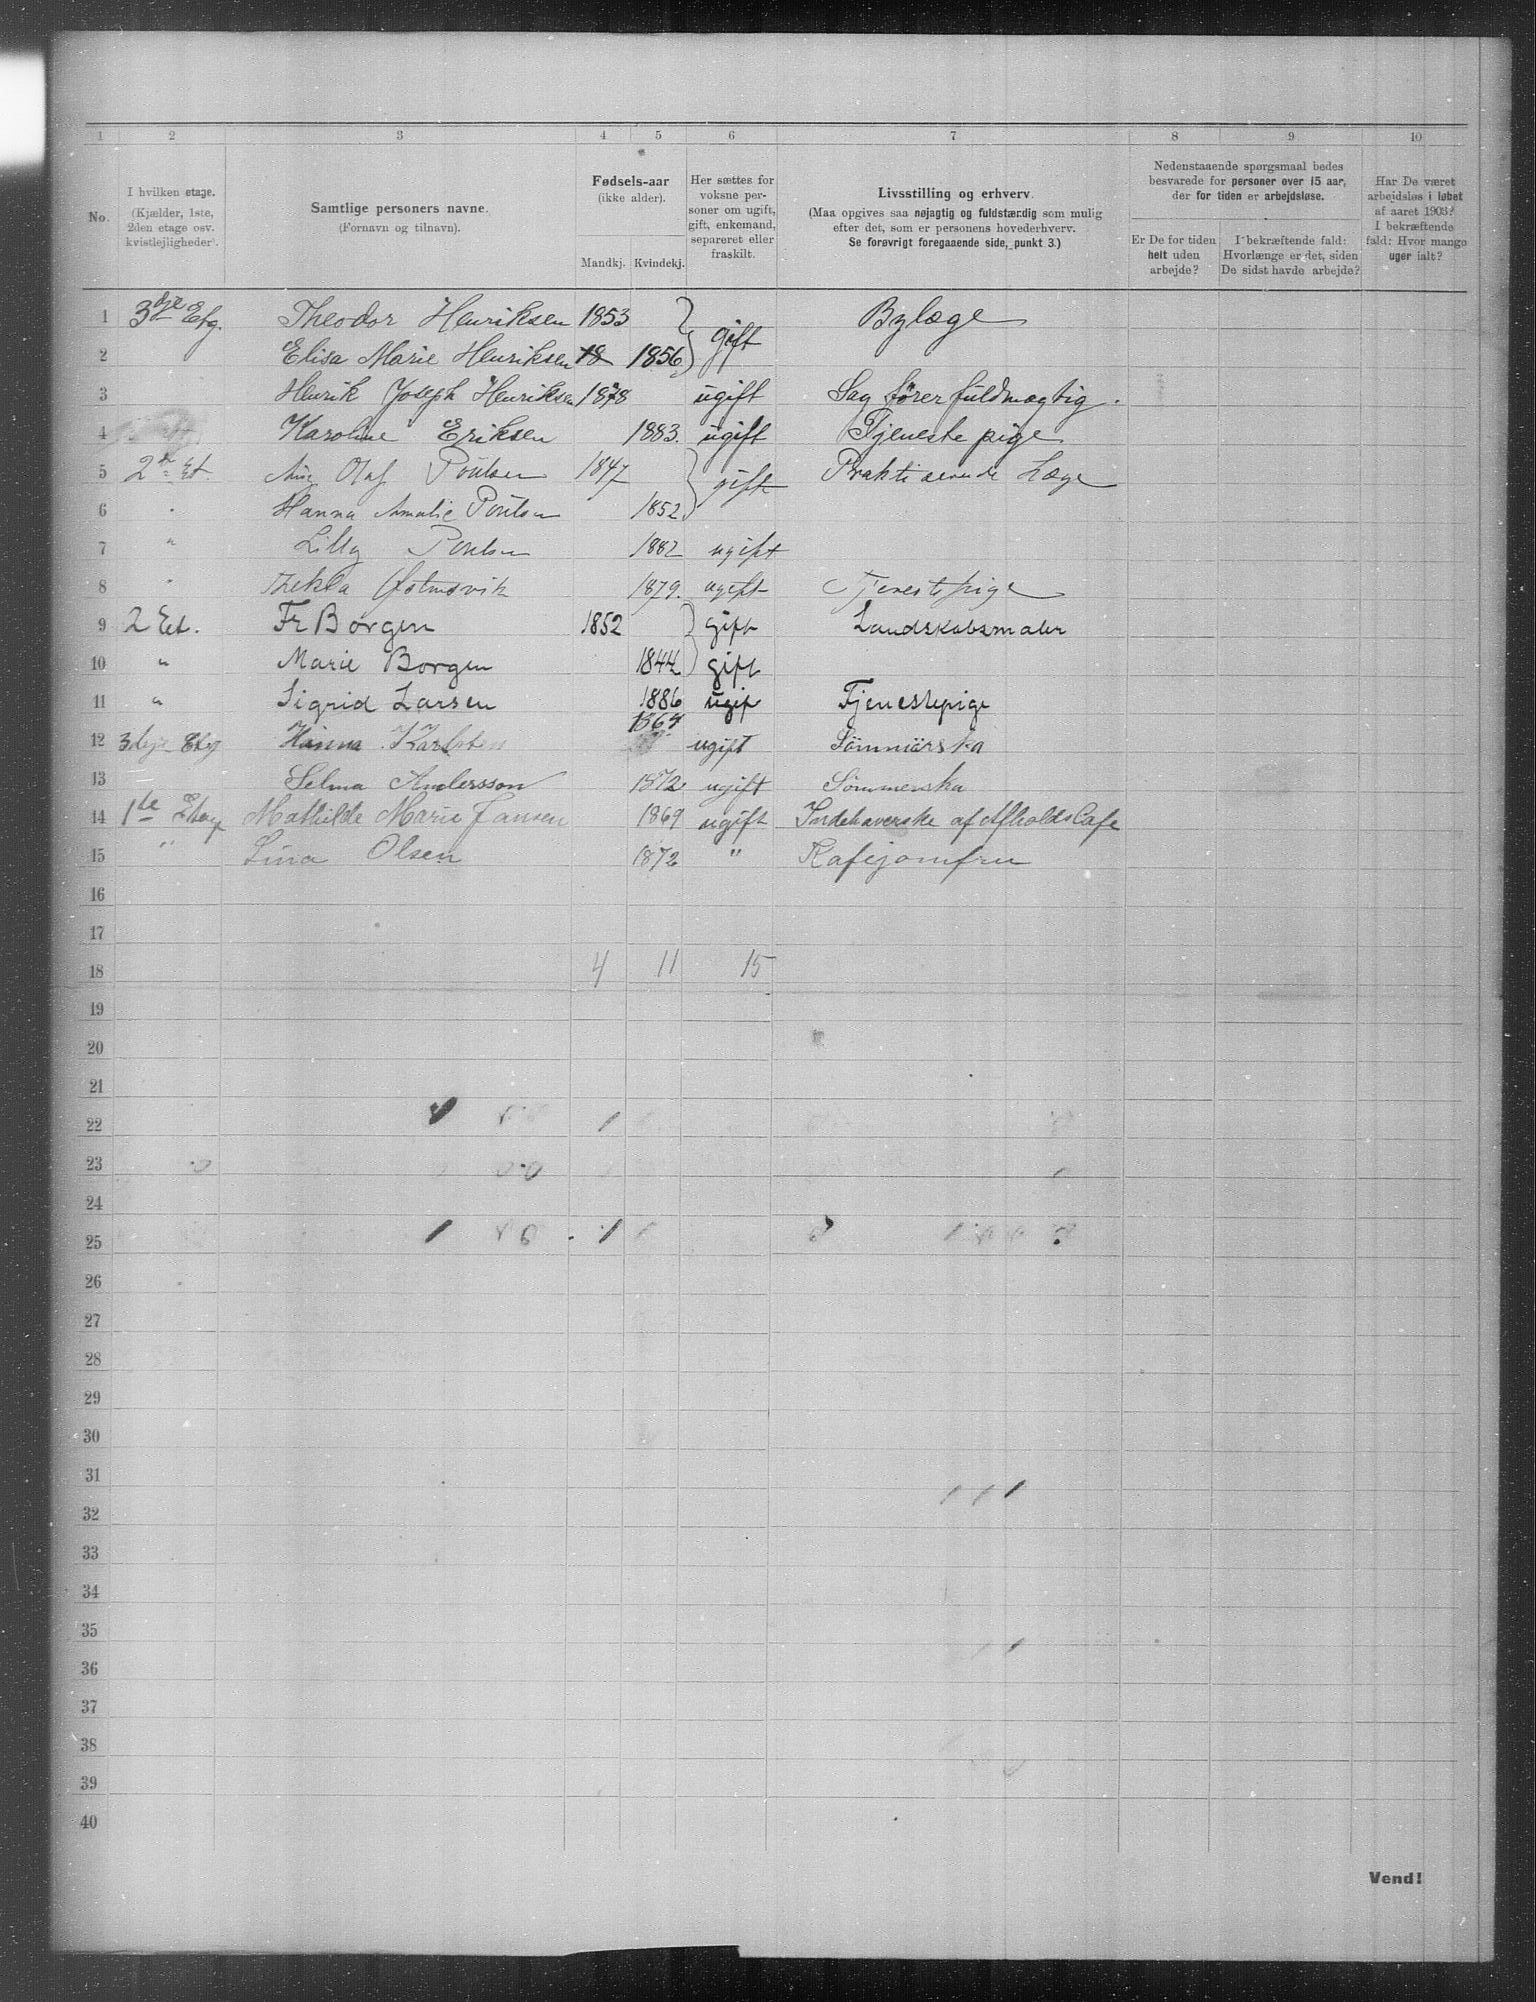 1 2 3 4 5 6 7 8 9 10
No.
I hvilken etage.
(Kjælder, 1ste, 2den etage osv. kvistlejligheder).
Samtlige personers navne.
(Fornavn og tilnavn).
Fødsels-aar
(ikke alder).
Mandkj. Kvindekj.
Her sættes for voksne personer om ugift, gift, enkemand, separeret eller fraskilt.
Livsstilling og erhverv.
(Maa opgives saa nøjagtig og fuldstændig som mulig efter det, som er personens hovederhverv.
Se forøvrigt foregaaende side, punkt 3.)
Nedenstaaende spørgsmaal bedes besvarede for personer over 15 aar, der for tiden er arbejdsløse.
Er De for tiden helt uden arbejde?
I bekræftende fald: Hvorlænge er det, siden De sidst havde arbejde?
Har De været arbejdsløs i løbet af aaret 1903? I bekræftende fald: Hvor mange uger ialt?
1 3dje Etg. Theodor Henriksen 1853 gift Bylæge
2 Elisa Marie Henriksen 18 1856
3 Henrik Joseph Henriksen 1878 ugift Sagførerfuldmægtig.
4 Karoline Eriksen 1883. ugift Tjenestepige
5 2n Et. Olaf Poulsen 1847 gift Praktiserende Læge
6 " Hanna Amalie Poulsen 1852
7 " Lilly Poulsen 1882 ugift
8 " Thekla 1879. ugift Tjenestepige
9 2 Et. Fr Borgen 1852 gift Landskabsmaler
10 " Marie Borgen 1844 gift
11 " Sigrid Larsen 1886 ugif Tjenestepige
12 3dje Etg Hanna Karlsten ugift Sömmärska
13 Selma Andersson 1872 ugift Sömmerska
14 1te Etage Mathilde Marie Jansen 1869 ugift Indehaverske af Afholds Cafe
15 " Lina Olsen 1872 " Kafejomfru
16
17
18 4 11 15
19
20
21
22
23
24
25
26
27
28
29
30
31
32
33
34
35
36
37
38
39
40
Vend!